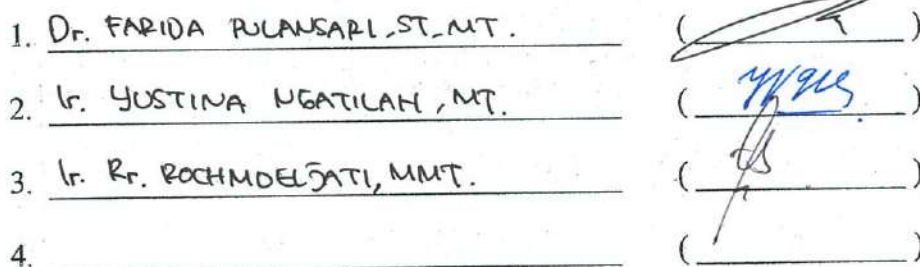 1. Dr. FARIDA PULANSARI, ST, MT. ( )
2. Ir. YUSTINA NGATILAH, MT. ( )
3. Ir. Rr. ROCHMOELJATI, MMT. ( )
4. ( )